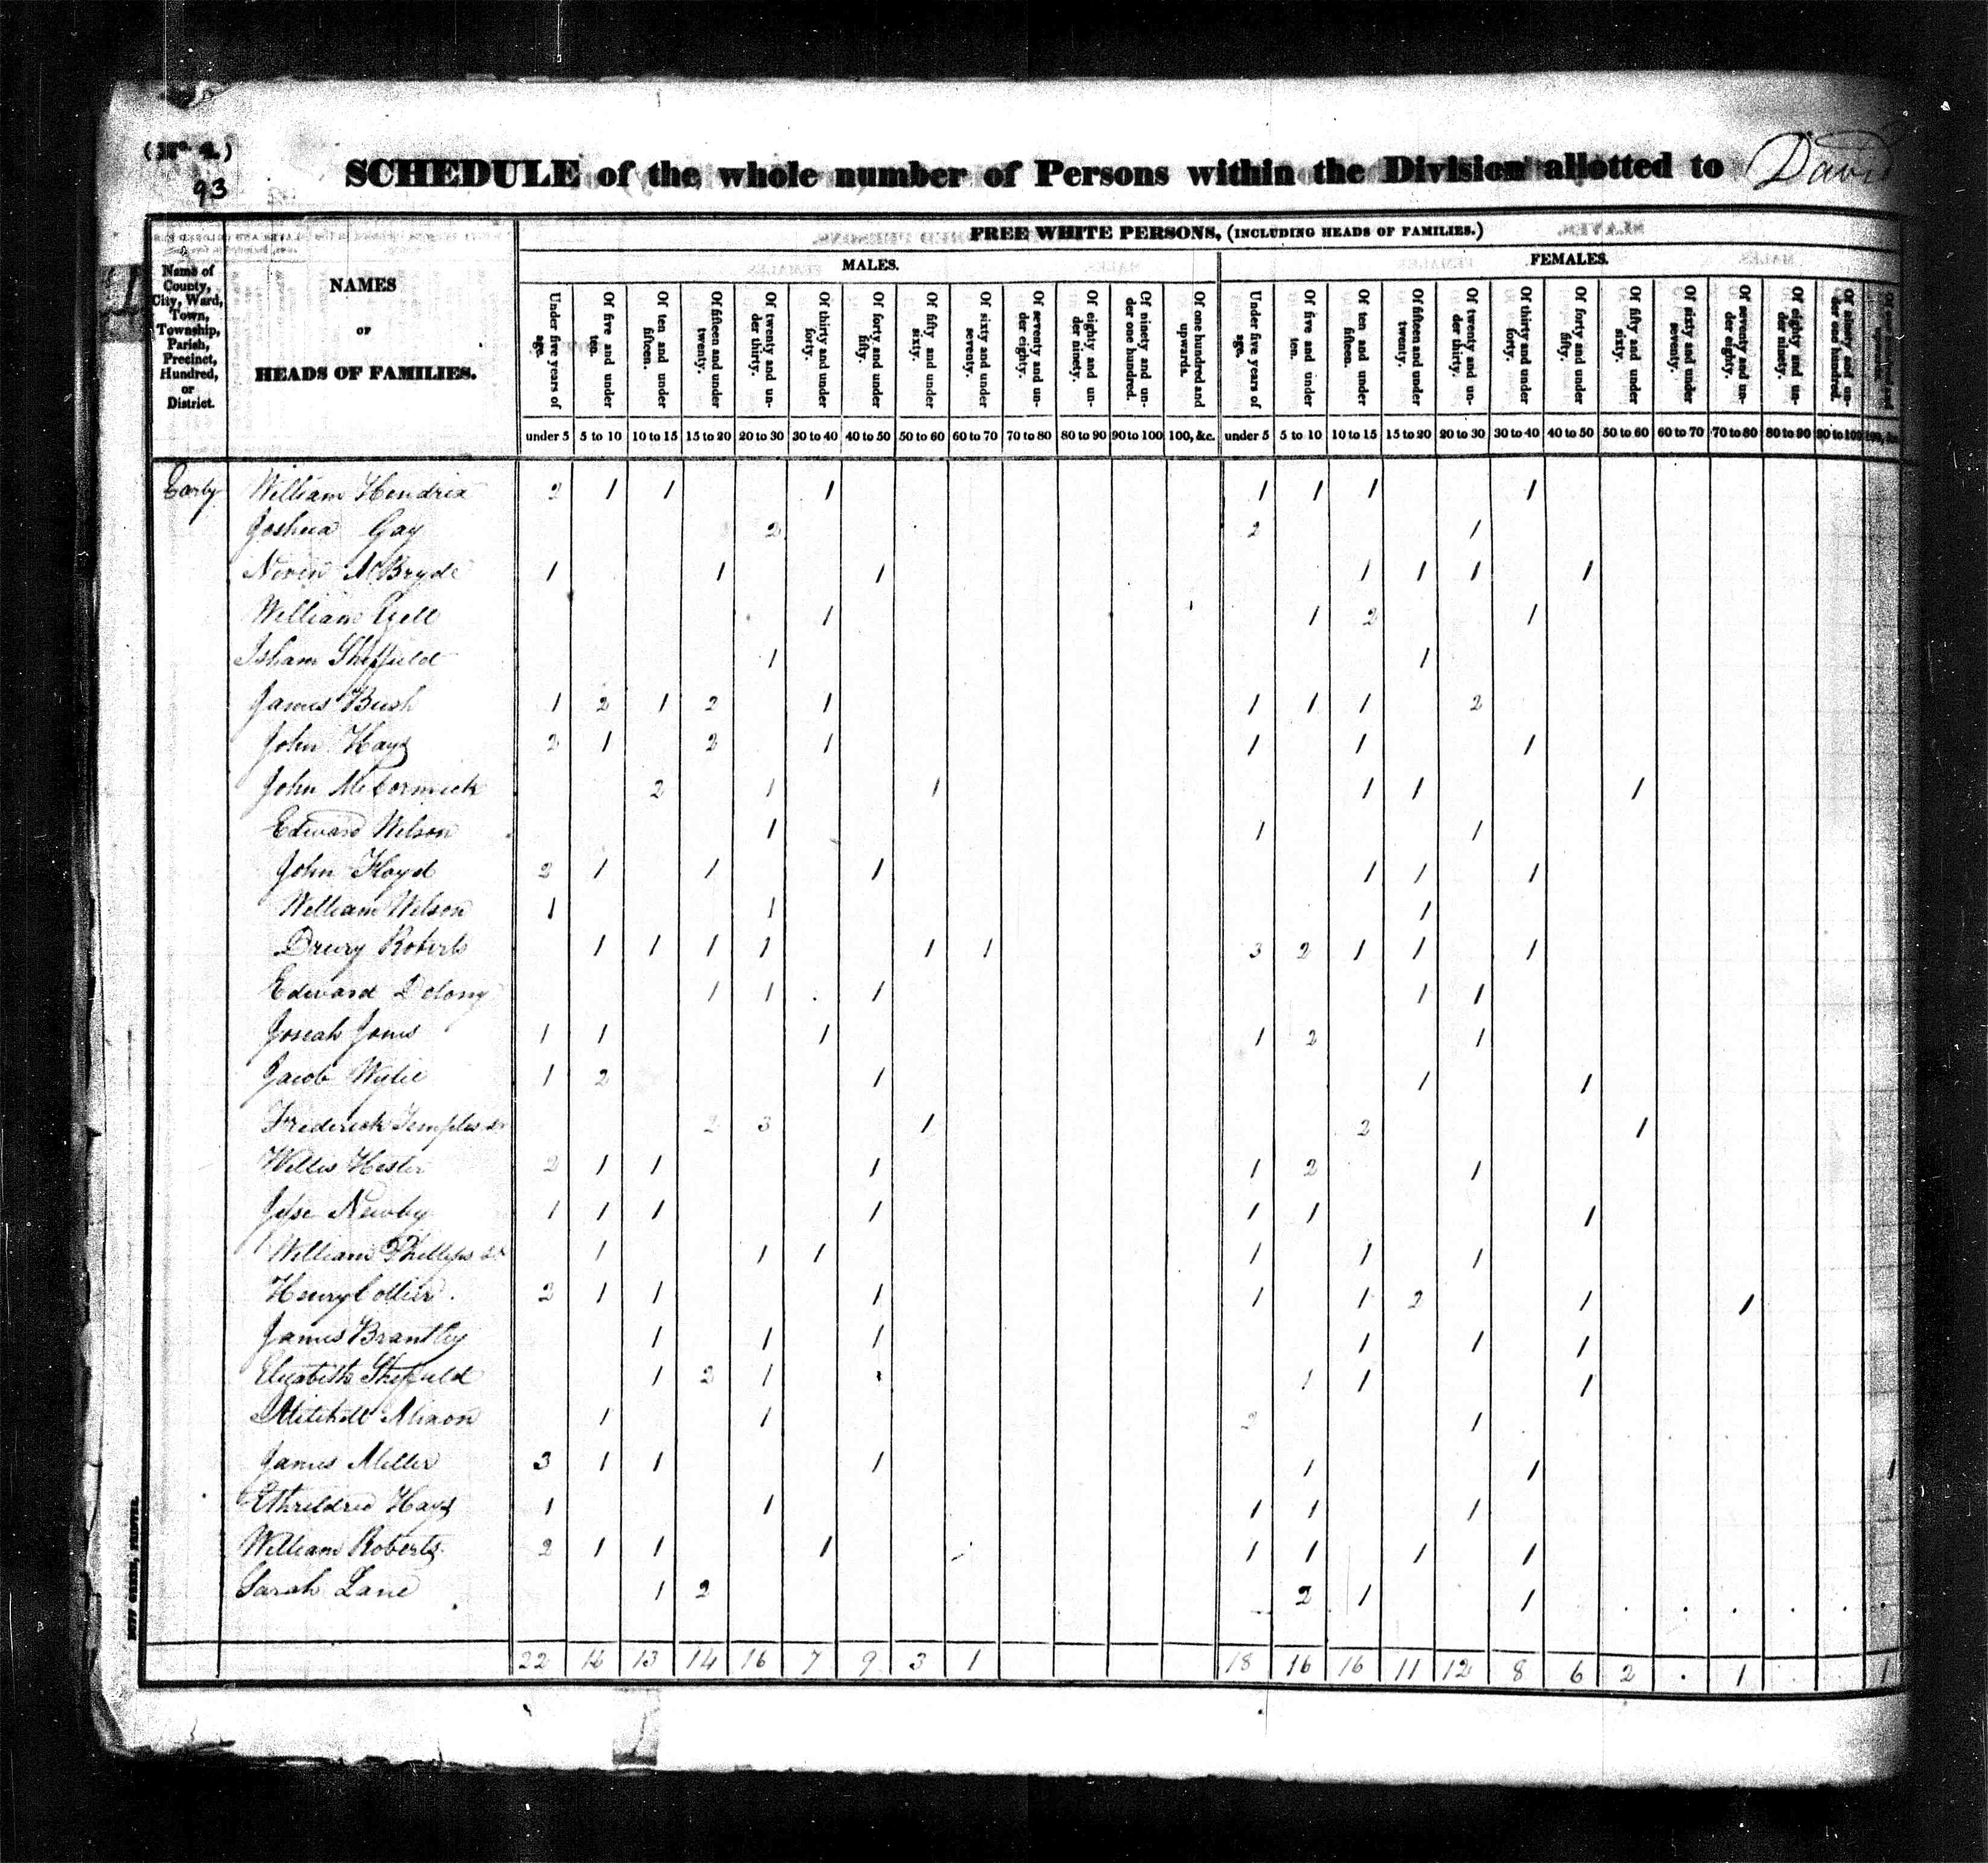 (No. 4.)
93
SCHEDULE of the whole number of Persons within the Division allotted to David
FREE WHITE PERSONS, (INCLUDING HEADS OF FAMILIES.)
MALES. FEMALES.
Name of County, City, Ward, Town, Township, Parish, Precinct, Hundred, or District.
NAMES
OF
HEADS OF FAMILIES.
Under five years of age. Of five and under ten. Of ten and under fifteen. Of fifteen and under twenty. Of twenty and under thirty. Of thirty and under forty. Of forty and under fifty. Of fifty and under sixty. Of sixty and under seventy. Of seventy and under eighty. Of eighty and under ninety. Of ninety and under one hundred. Of one hundred and upwards. Under five years of age. Of five and under ten. Of ten and under fifteen. Of fifteen and under twenty. Of twenty and under thirty. Of thirty and under forty. Of forty and under fifty. Of fifty and under sixty. Of sixty and under seventy. Of seventy and under eighty. Of eighty and under ninety. Of ninety and under one hundred.
under 5 5 to 10 10 to 15 15 to 20 20 to 30 30 to 40 40 to 50 50 to 60 60 to 70 70 to 80 80 to 90 90 to 100 100, &c. under 5 5 to 10 10 to 15 15 to 20 20 to 30 30 to 40 40 to 50 50 to 60 60 to 70 70 to 80 80 to 90 90 to 100 100, &c.
Early William Hendrix 2 1 1 1 1 1 1 1
Joshua Gay 2 2 1
Niven McBryde 1 1 1 1 1 1 1
William 1 1 2 1
Isham Sheffield 1 1
James Bush 1 2 1 2 1 1 1 1 2
John Hays 2 1 2 1 1 1 1
John McCormick 2 1 1 1 1 1
Edward Wilson 1 1 1
John Floyd 2 1 1 1 1 1 1
William Wilson 1 1 1
Drury Roberts 1 1 1 1 1 1 3 2 1 1 1
Edward Delony 1 1 1 1 1
Josiah Jones 1 1 1 1 2 1
Jacob Wylie 1 2 1 1 1
Frederick Temples Sr 2 3 1 2 1
Willis Hester 2 1 1 1 1 2 1
Jesse Newby 1 1 1 1 1 1 1
William Phillips Sr 1 1 1 1 1 1
Henry Collier 2 1 1 1 1 1 2 1 1
James Brantley 1 1 1 1 1 1
Elizabeth Sheffield 1 2 1 1 1 1
Mitchell Nixon 1 1 2 1
James Miller 3 1 1 1 1 1 1
Ethreldred Hays 1 1 1 1 1
William Roberts 2 1 1 1 1 1 1 1
Sarah Lane 1 2 2 1 1
22 16 13 14 16 7 9 3 1 18 16 16 11 12 8 6 2 . 1 1